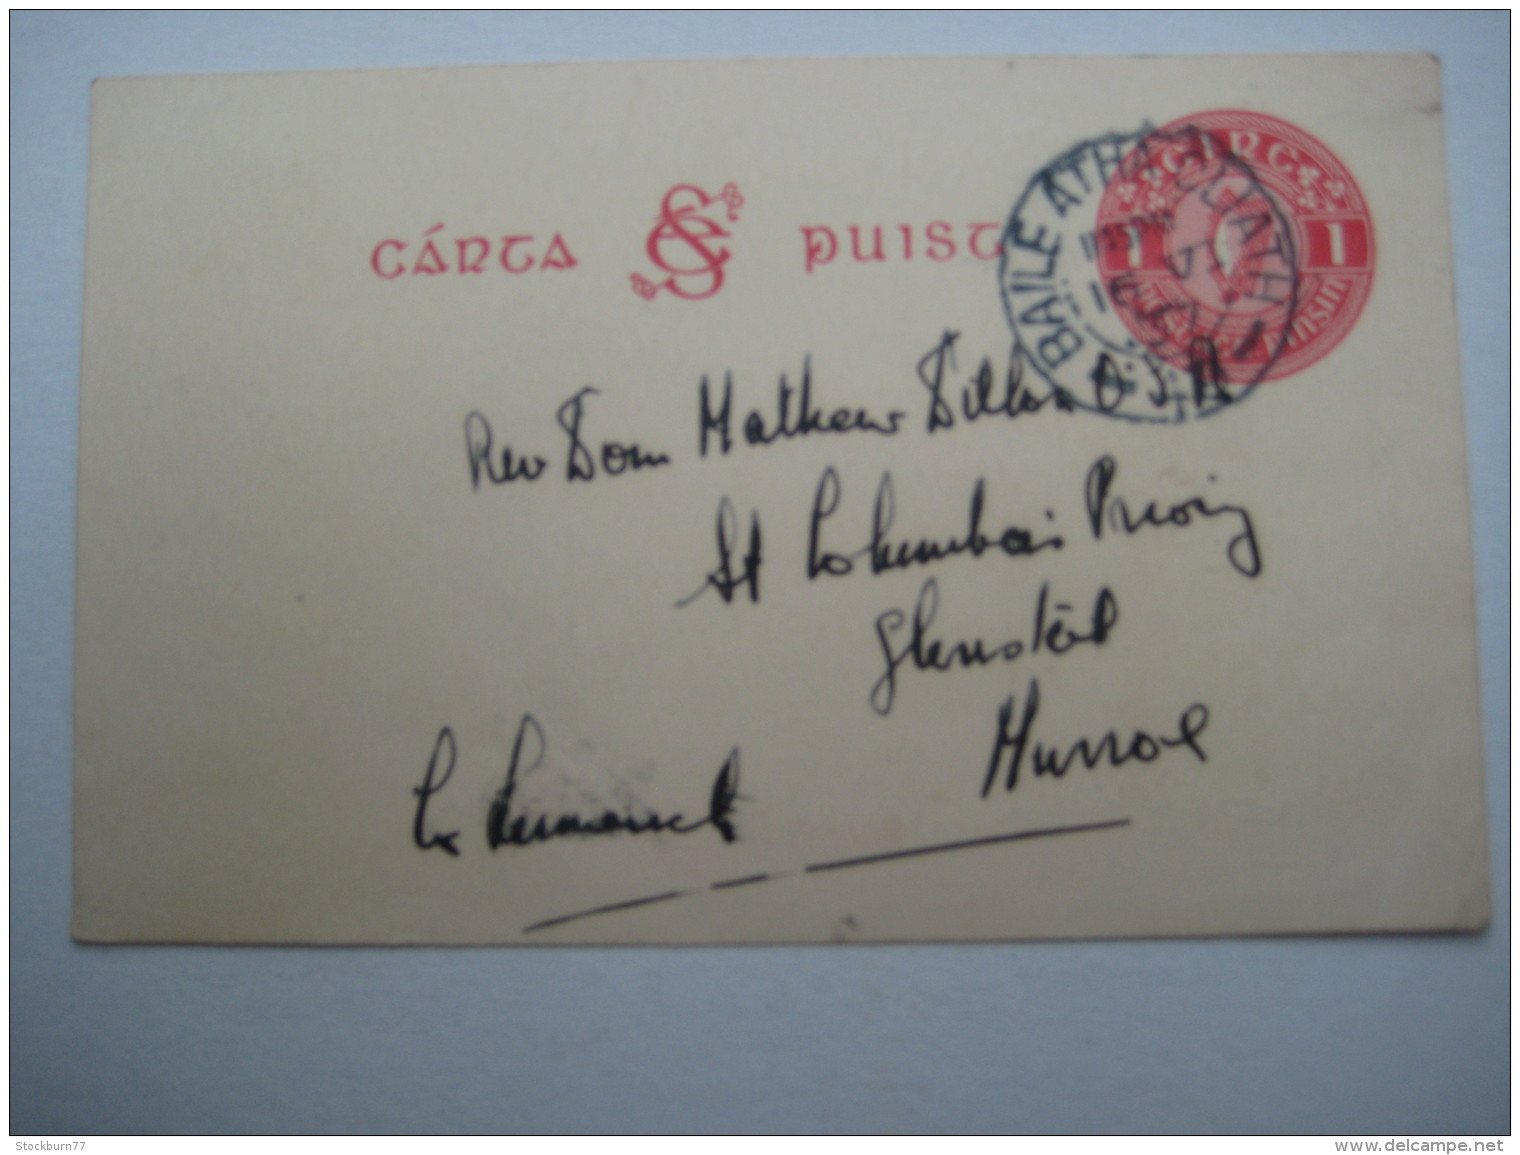 CÁRTA SE PUIST
ÉIRE
1 1
pinsin
BAILE ÁTHA CLIATH
Rev Dom Mathew Dillon O.S.B
St Columba's Priory
Glenstal
Murroe
Co Limerick
Stockburn77
www.delcampe.net